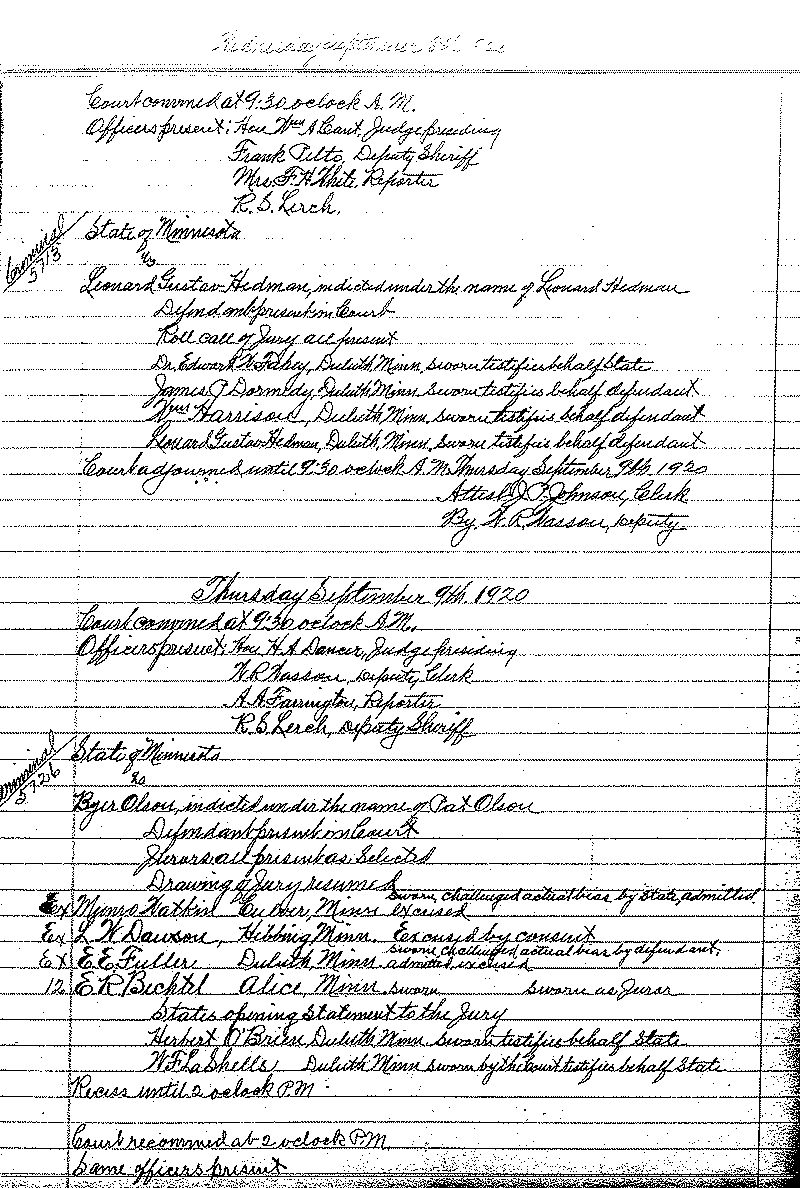 Wednesday September 8th 1920
Court convened at 9:30 oclock A.M.
Officers present; Hon Wm A Cant, Judge presiding
Frank Pelto, Deputy Sheriff
Mrs. F. H. White, Reporter
R. S. Lerch,
State of Minnesota
Criminal
5713
vs
Leonard Gustav Hedman, indicted under the name of Leonard Hedman
Defendant present in Court
Roll call of Jury all present
Dr. Edward W. Fahey, Duluth Minn, sworn testifies behalf State
James P Dormedy, Duluth Minn, sworn testifies behalf defendant
Wm Harrison, Duluth Minn, sworn testifis behalf defendant
Leonard Gustav Hedman, Duluth, Minn, sworn testifis behalf defendant
Court adjourned until 9:30 oclock A.M. Thursday September 9th, 1920
Attest J. P. Johnson, Clerk
By W. R. Wasson, Deputy
Thursday September 9th, 1920
Court convened at 9:30 oclock A.M.
Officers present; Hon. H. A Dancer, Judge presiding
W. R. Wasson, Deputy Clerk
A. A. Farrington, Reporter
R. S. Lerch, Deputy Sheriff
State of Minnesota
Criminal
5726
vs
Byer Olson, indicted under the name of Pat Olson
Defendant present in Court
Jurors all present as selected
Drawing of Jury resumed
Ex Munro Watkin Culver, Minn sworn, challenged actual bias by State, admitted excused
Ex L. W. Dawson, Hibbing Minn. Excused by consent
Ex E. E. Fuller Duluth Minn sworn challenged actual bias by defendant, admitted, excused
12 E. R. Bechtel Alice, Minn sworn sworn as Juror
States opening statement to the Jury
Herbert O'Brien, Duluth Minn, sworn testifies behalf State
W. F. LaShells, Duluth Minn sworn by the Court testifies behalf State
Recess until 2 oclock P.M.
Court reconvened at 2 oclock P.M.
Same officers present